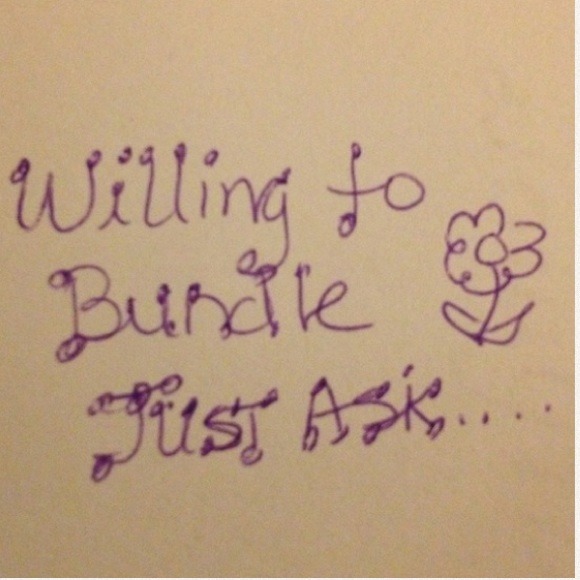 Willing to
Bundle
Just Ask....